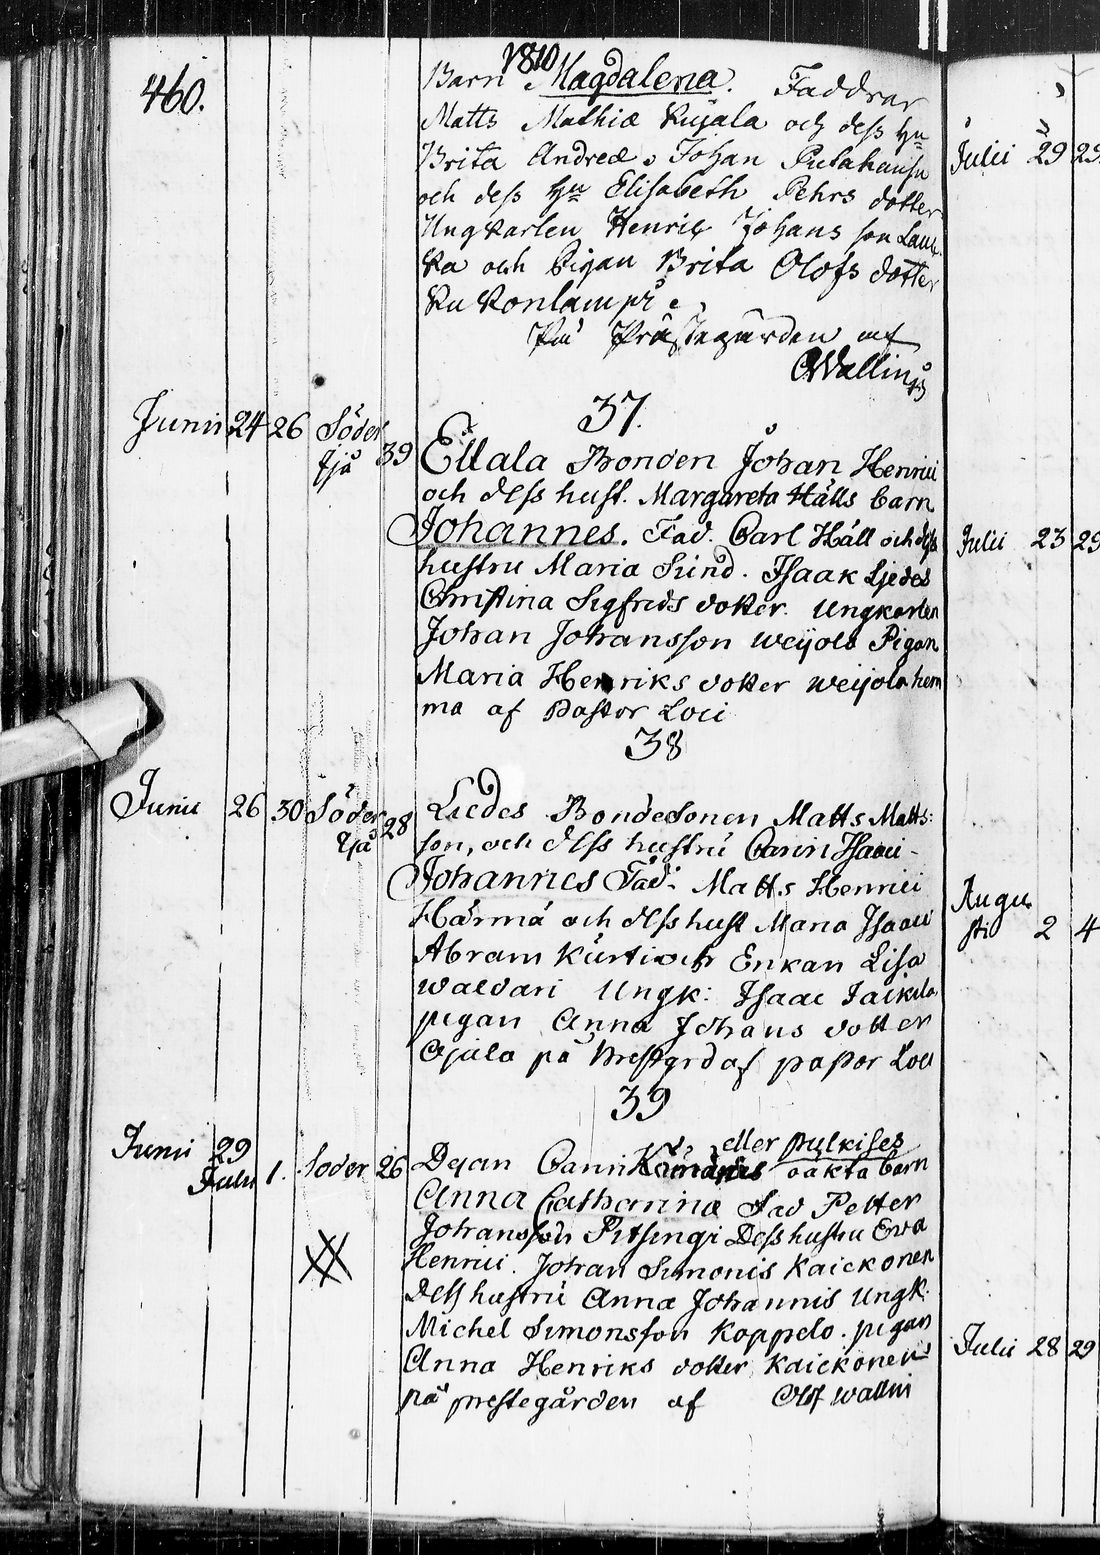 1810
460.
Barn Magdalena. Faddrar
Matts Mathiæ Kujala och dess Hu
Brita Andreæ, Johan
och dess Hu Elisabeth Pehrs dotter
Ungkarlen Henric Johans son Lauk
ka och Pigan Brita Olofs dotter
Kukonlampi.
På Prästegården af
OWallin
37.
Junii 24 26 Söder
fjä 39
Ellala Bonden Johan Henrici
och dess hust. Margareta Hälls barn
Johannes. Fad. Carl Häll och dess
hustru Maria Sund. Isaak Ljedes
Christina Sigfreds dotter. Ungkarlen
Johan Johansson Weijola Pigan
Maria Henriks dotter Weijola hem
ma af Pastor Loci
38
Junii 26 30 Söder
fjä 28
Liedes Bondesonen Matts Matts:
son, och dess hustru Carin Isaaci
Johannes Fad: Matts Henrici
Härmä och dess hust Maria Isaaci
Abram Kurti och Enkan Lisa
Waldari Ungk: Isaac
pigan Anna Johans dotter
Ojala på Prestgrd af pastor Loci
39
Junii 29
Julii 1. Söder 26
eller pulkises
Dejan Carin oäkta barn
Anna Catharina Fad Petter
Johansson Pitsingi Dess hustru Eva
Henrici. Johan Simonis Kaickonen
Dess hustru Anna Johannis Ungk.
Michel Simonsson Koppelo. pigan
Anna Henriks dotter Kaickonen
på prestegården af Olof Wallin
Julii 29 29
Julii 23 29
Augu
sti 2 4
Julii 28 29